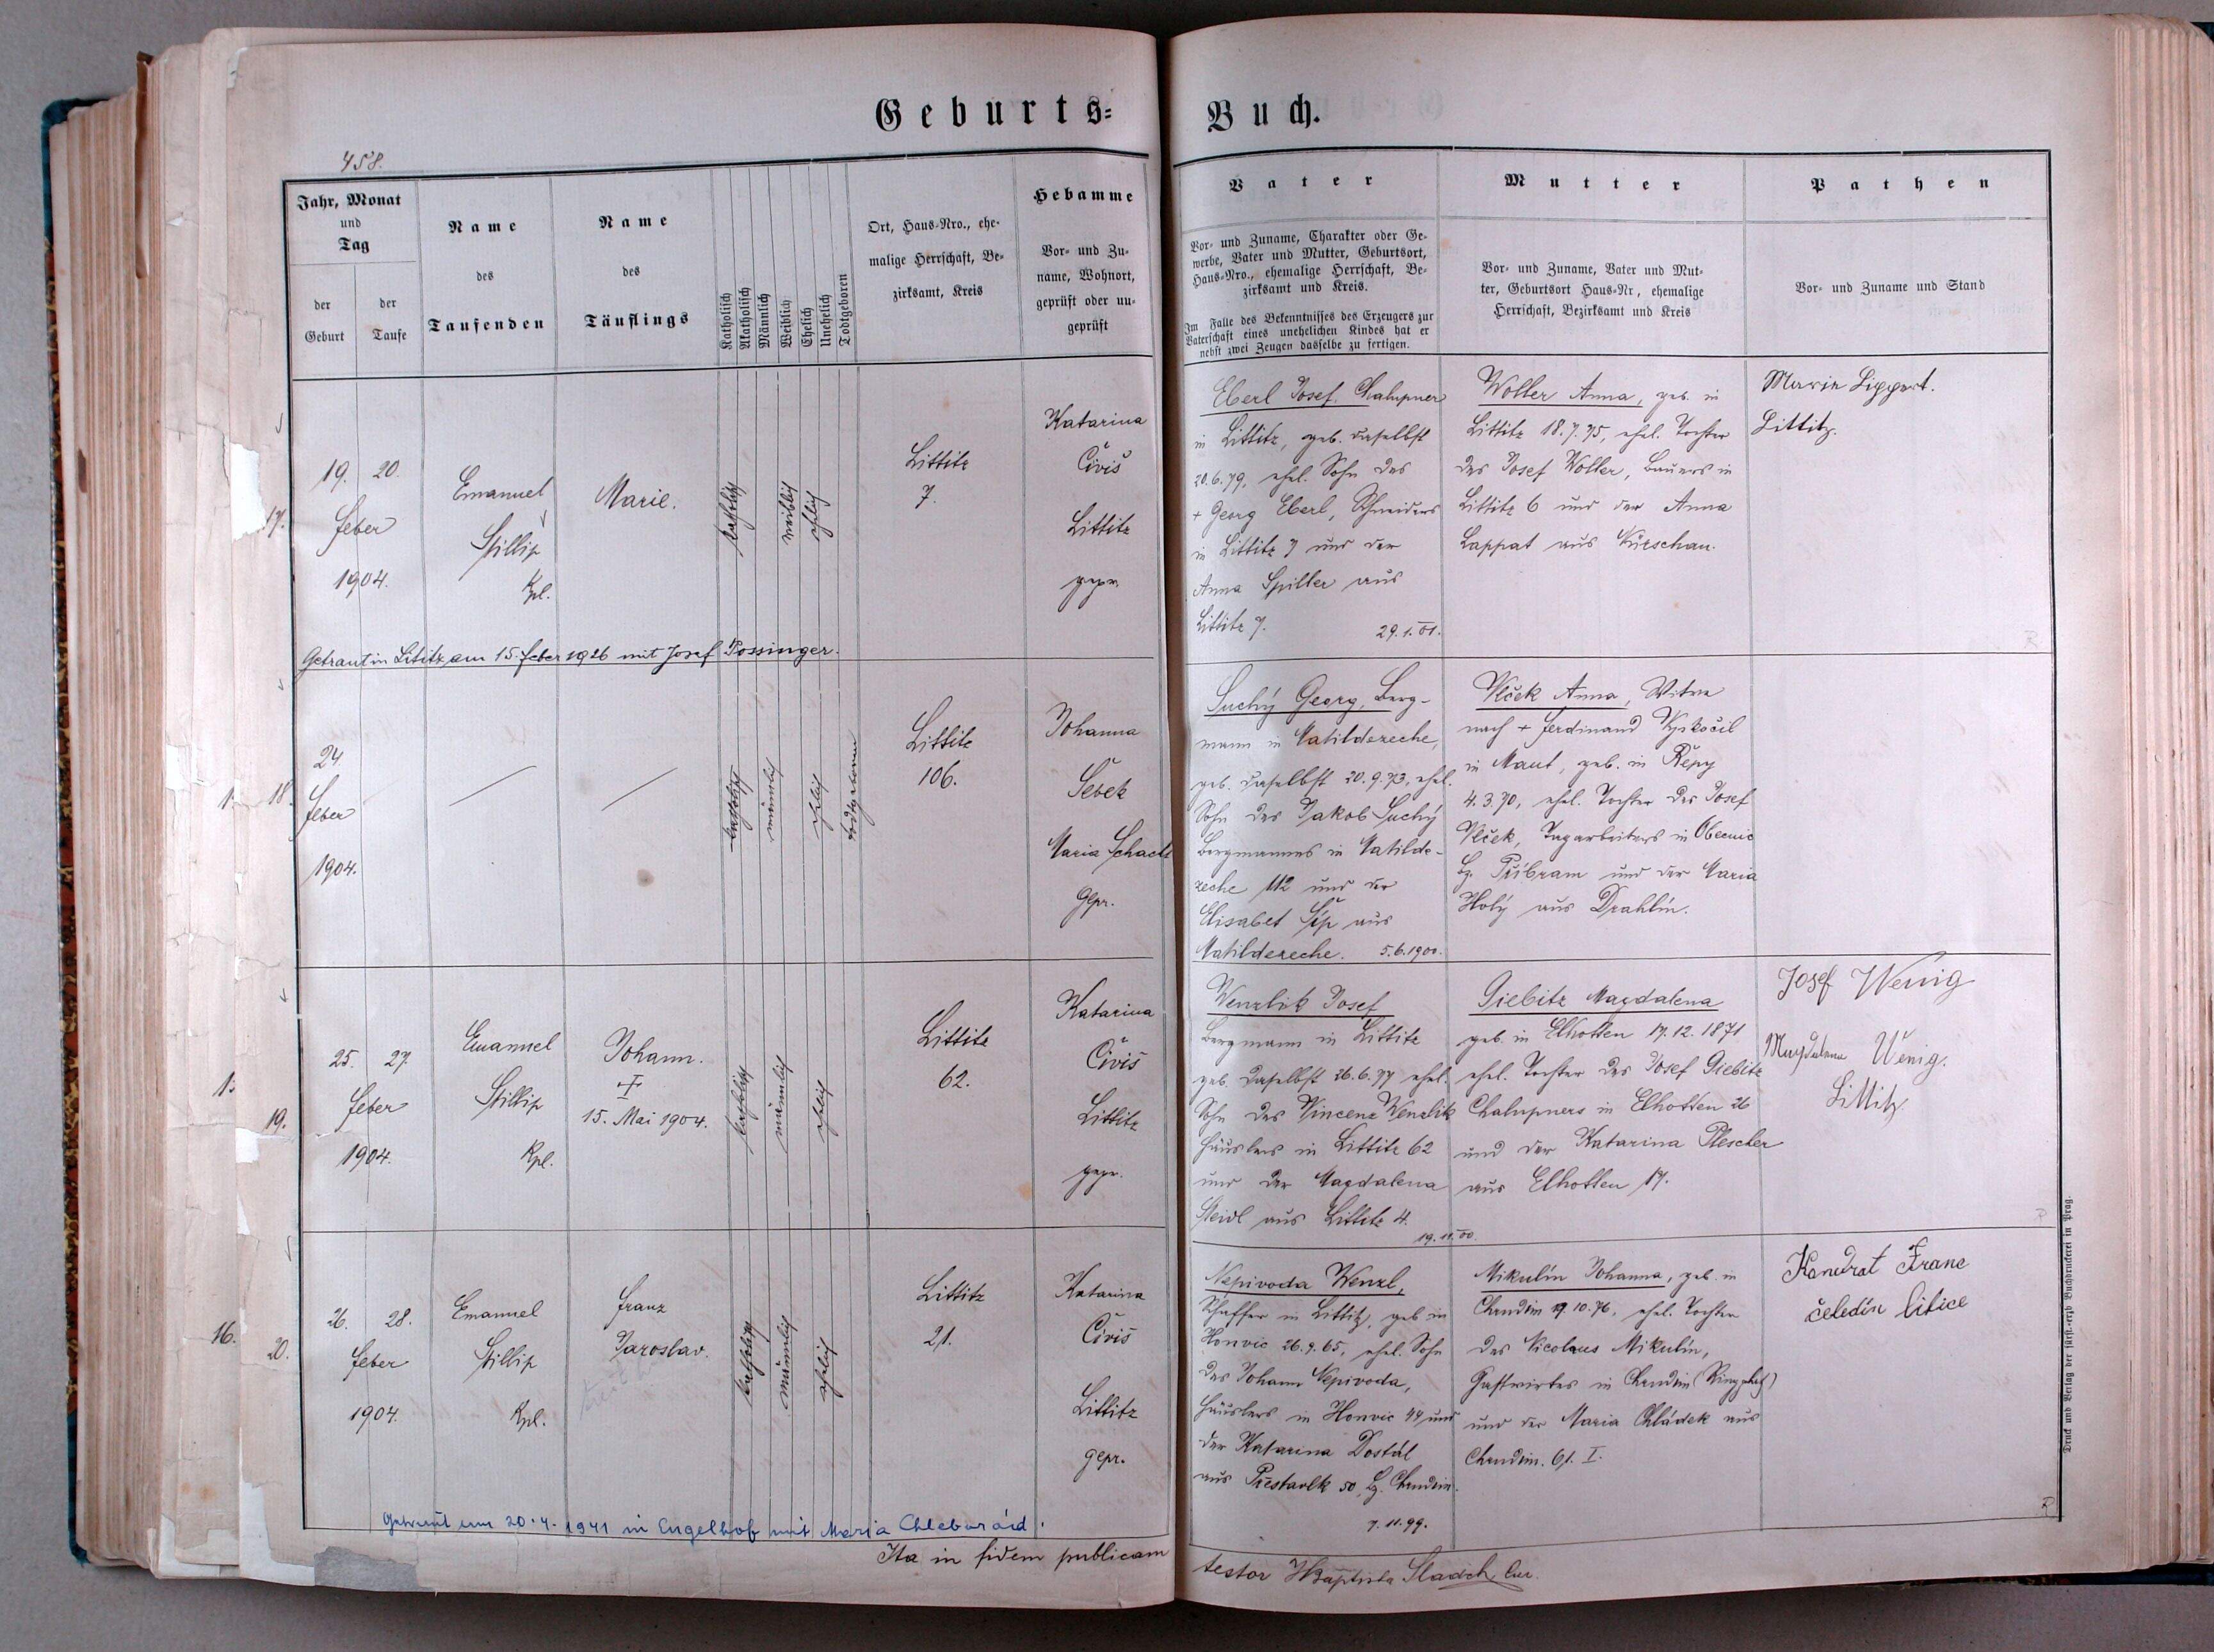 Geburts=
Buch.
458.
Jahr, Monat
und
Tag
der
Geburt
der
Taufe
Name
des
Taufenden
Name
des
Täuflings
Katholisch
Akatholisch
Männlich
Weiblich
Ehelich
Unehelich
Todtgeboren
Ort, Haus-Nro., ehe-
malige Herrschaft, Be-
zirksamt, Kreis
Hebamme
Vor- und Zu-
name, Wohnort,
geprüft oder un-
geprüft
Vater
Vor- und Zuname, Charakter oder Ge-
werbe, Vater und Mutter, Geburtsort,
Haus-Nro., ehemalige Herrschaft, Be-
zirksamt und Kreis.
Im Falle des Bekenntnisses des Erzeugers zur
Vaterschaft eines unehelichen Kindes hat er
nebst zwei Zeugen dasselbe zu fertigen.
Mutter
Vor- und Zuname, Vater und Mut-
ter, Geburtsort Haus-Nr, ehemalige
Herrschaft, Bezirksamt und Kreis
Pathen
Vor- und Zuname und Stand
17.
19. 20.
Feber
1904.
Emanuel
Stillip
Kpl.
Marie.
katholisch
weiblich
ehlich
Littitz
7.
Katarina
Čiviš
Littitz
gepr.
Eberl Josef, Chalupner
in Littitz, geb. daselbst
20.6.79, ehel. Sohn des
+ Georg Eberl, Schneiders
in Littitz 7 und der
Anna Spiller aus
Littitz 7.
29.1.01.
Woller Anna, geb. in
Littitz 18.7.75, ehel. Tochter
des Josef Woller, Bauers in
Littitz 6 und der Anna
Lappat aus Kürschau.
Marie Lippert.
Littitz.
Getraut in Lititz am 15. Feber 1926 mit Josef Possinger.
1. 18.
24
Feber
1904.
katholisch
männlich
ehlich
todtgeboren
Littitz
106.
Johanna
Šebek
Maria Schacht
gepr.
Suchý Georg, Berg-
mann in Matildezeche,
geb. daselbst 20.9.73, ehel.
Sohn des Jakob Suchý
Bergmannes in Matilde-
zeche 112 und der
Elisabet Šíp aus
Matildezeche. 5.6.1900.
Vlček Anna, Witwe
nach + Ferdinand Vyskočil
in Maut, geb. in Řepy
4.3.70, ehel. Tochter des Josef
Vlček, Tagarbeiters in Obecnic
Bz. Příbram und der Maria
Holý aus Drahlín.
1. 19.
25. 27.
Feber
1904.
Emanuel
Stillip
Kpl.
Johann.
15. Mai 1904.
katholisch
männlich
ehlich
Littitz
62.
Katarina
Čiviš
Littitz
gepr.
Wenzlik Josef
Bergmann in Littitz
geb. daselbst 26.6.77 ehel.
Sohn des Vincenz Wenzlik
Häuslers in Littitz 62
und der Magdalena
Steidl aus Littitz 4.
19.11.00.
Giebitz Magdalena
geb. in Elhotten 17.12.1871
ehel. Tochter des Josef Giebitz
Chalupners in Elhotten 26
und der Katarina Plescher
aus Elhotten 17.
Josef Wenig
Magdalena Wenig.
Littitz
16. 20.
26. 28.
Feber
1904.
Emanuel
Stillip
Kpl.
Franz
Jaroslav.
katholisch
männlich
ehlich
Littitz
21.
Katarina
Čiviš
Littitz
gepr.
Nepivoda Wenzl,
Schaffer in Littitz, geb in
Honvic 26.9.65, ehel. Sohn
des Johann Nepivoda,
Häuslers in Honvic 44 und
der Katarina Dostál
aus Přestavlk 50, Bz. Chrudim.
7.11.99.
Mikulín Johanna, geb. in
Chrudim 19.10.76, ehel. Tochter
des Nicolaus Mikulín,
Gastwirtes in Chrudim
und der Maria Chládek aus
Chrudim. 61. I.
Kondrat Franc
čeledín litice
Getraut am 20.4.1941 in Engelhof mit Maria
Ita in fidem publicam
testor JBaptista Sladek Cur.
Druck und Verlag der fürst=erzb Buchdruckerei in Prag.